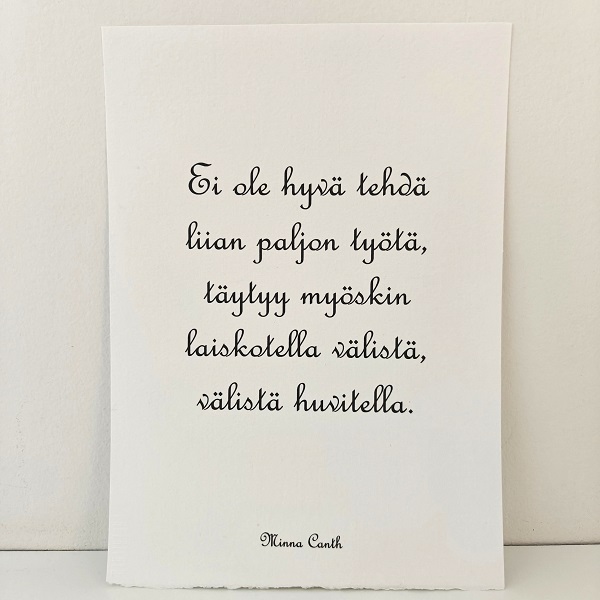 Ei ole hyvä tehdä
liian paljon työtä,
täytyy myöskin
laiskotella välistä,
välistä huvitella.
Minna Canth